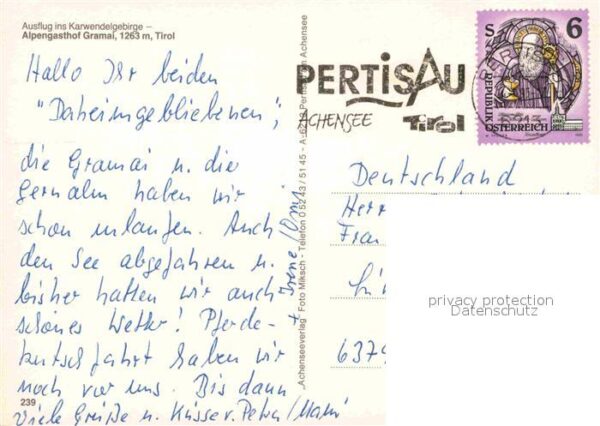 Ausflug ins Karwendelgebirge –
Alpengasthof Gramai, 1263 m, Tirol
Hallo Ihr beiden
"Daheimgebliebenen",
die Gramai u. die
Gernalm haben wir
schon umlaufen. Auch
den See abgefahren u.
bisher hatten wir auch
schönes Wetter! Pferde-
kutschfahrt haben wir
noch vor uns. Bis dann
Viele Grüße u. Küsse v. Petra/Mami
+ Irene/Omi
239
"Achenseeverlag" Foto Miksch - Telefon 0 52 43 / 51 45 - A-6213 Pertisau am Achensee
PERTISAU
ACHENSEE TiRoL
S 6
REPUBLIK
ÖSTERREICH
Deutschland
Herr
6379
privacy protection
Datenschutz